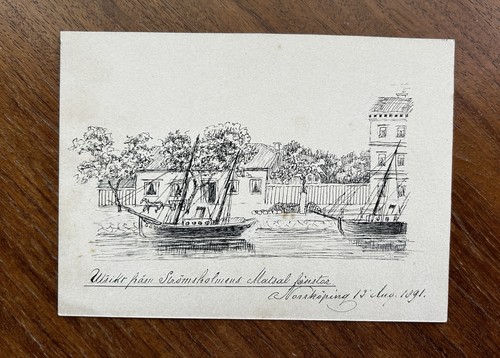 Utsikt från Strömsholmens Matsal fönster
Norrköping 13 Aug. 1891.